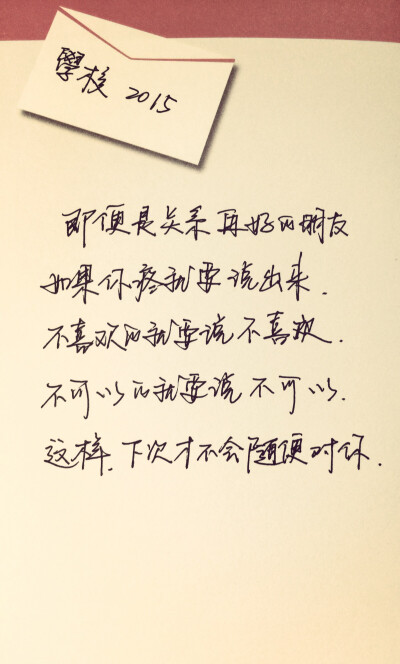 學校 2015
即便是关系再好的朋友
如果你疼就要说出来.
不喜欢的就要说不喜欢.
不可以的就要说不可以.
这样.下次才不会随便对你.